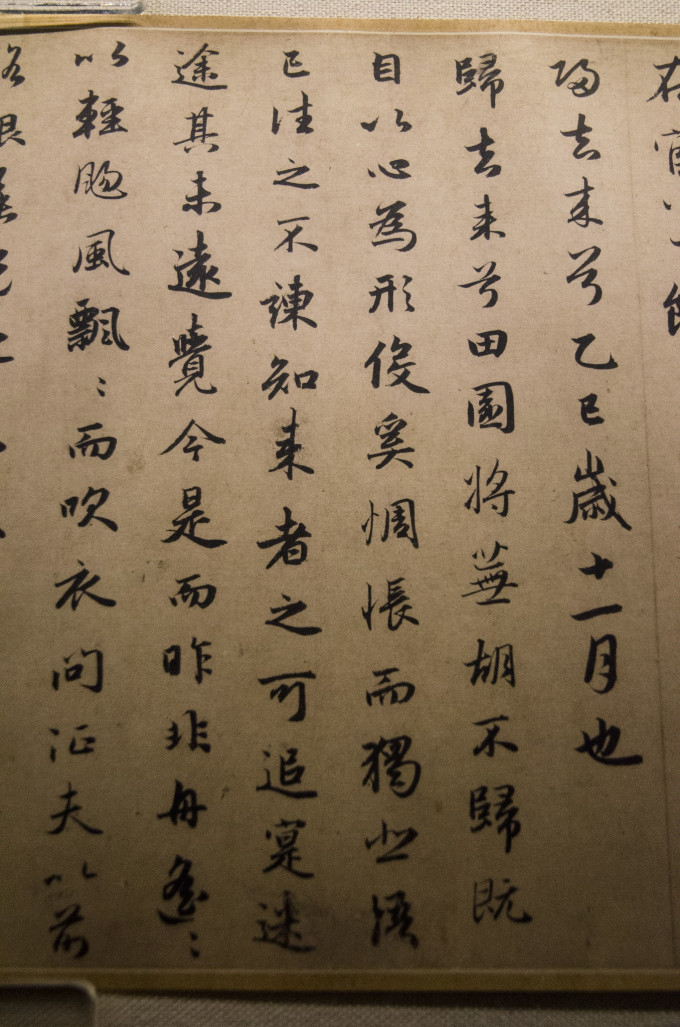 在官八十餘
歸去来兮乙巳歲十一月也
歸去来兮田園将蕪胡不歸既
自以心為形役奚惆悵而獨悲悟
已往之不諫知来者之可追寔迷
途其未遠覺今是而昨非舟遙〻
以輕颺風飄〻而吹衣問征夫以前
路恨晨光之